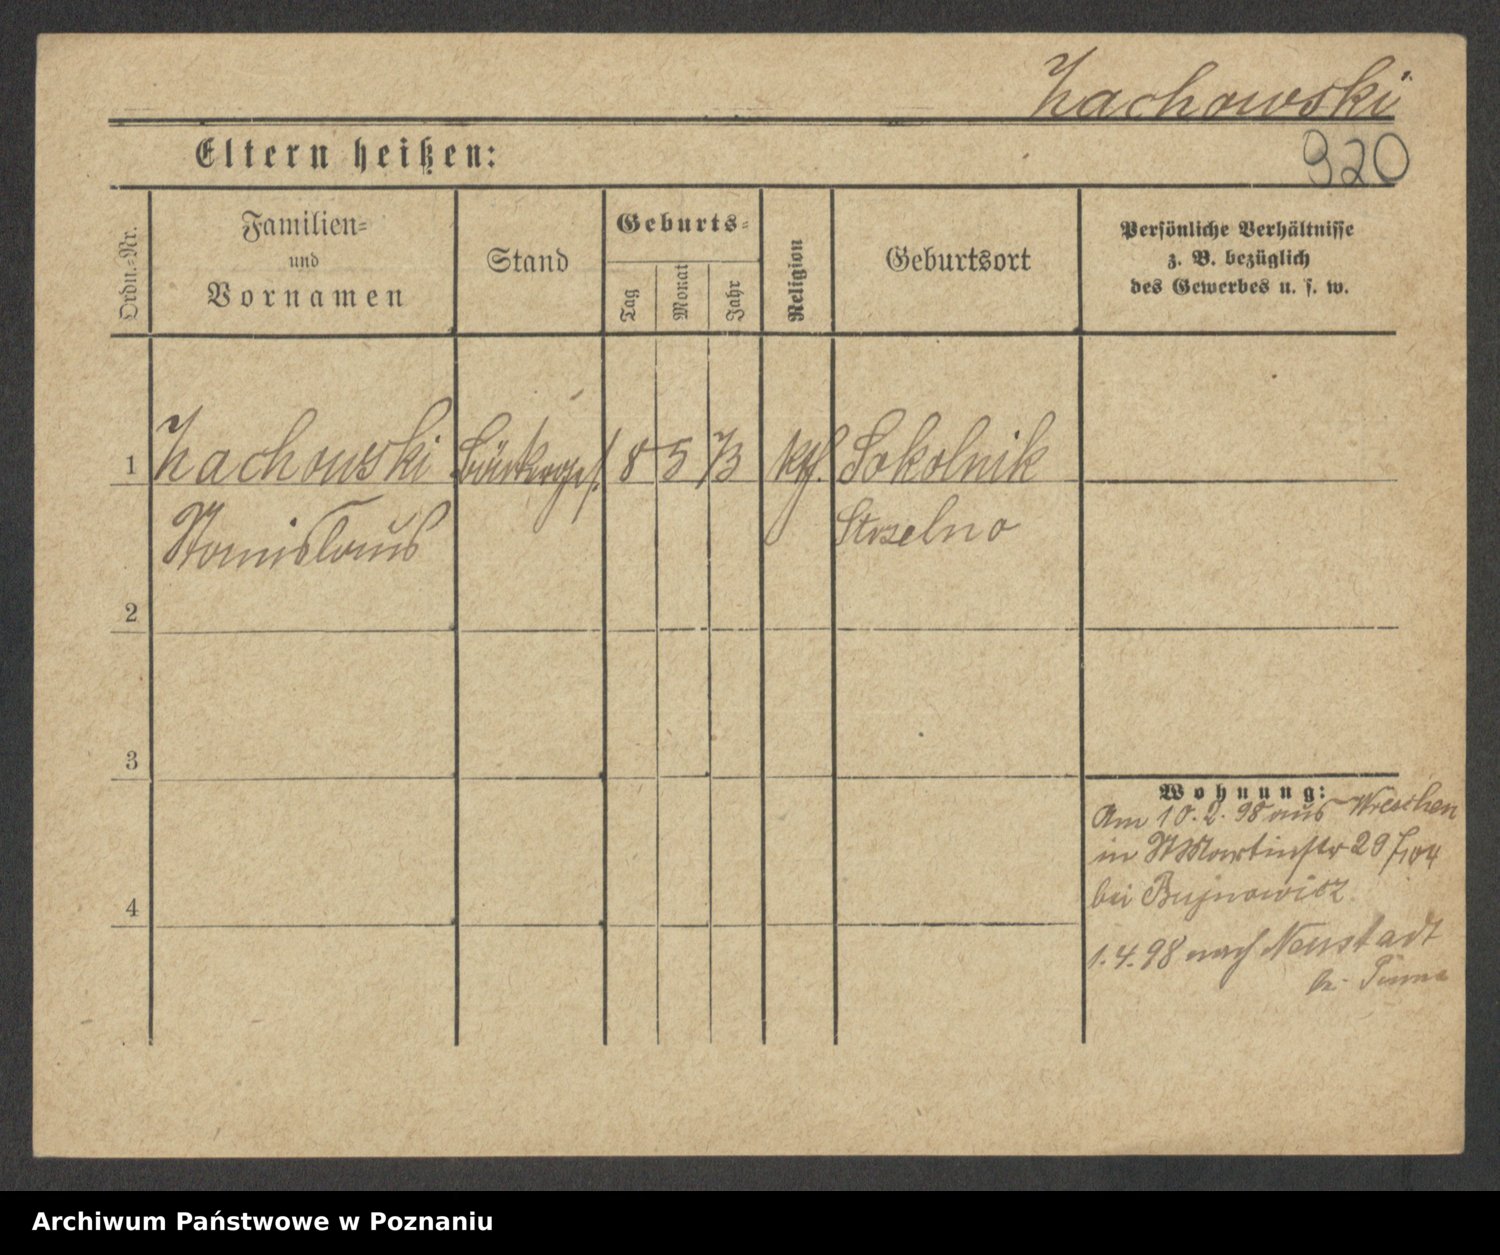 Zachowski
920
Eltern heißen:
Ordn.=Nr.
Familien=
und
Vornamen
Stand
Geburts=
Tag
Monat
Jahr
Religion
Geburtsort
Persönliche Verhältnisse
z. B. bezüglich
des Gewerbes u. s. w.
1 Zachowski 8 5 73 kth. Sokolnik
Stanislaus Strzelno
2
3
Wohnung:
Am 10.2.98 aus Wreschen
in St Martinstr 29
bei Bujnowicz
4
1.4.98 nach Neustadt
b. Pinne
Archiwum Państwowe w Poznaniu